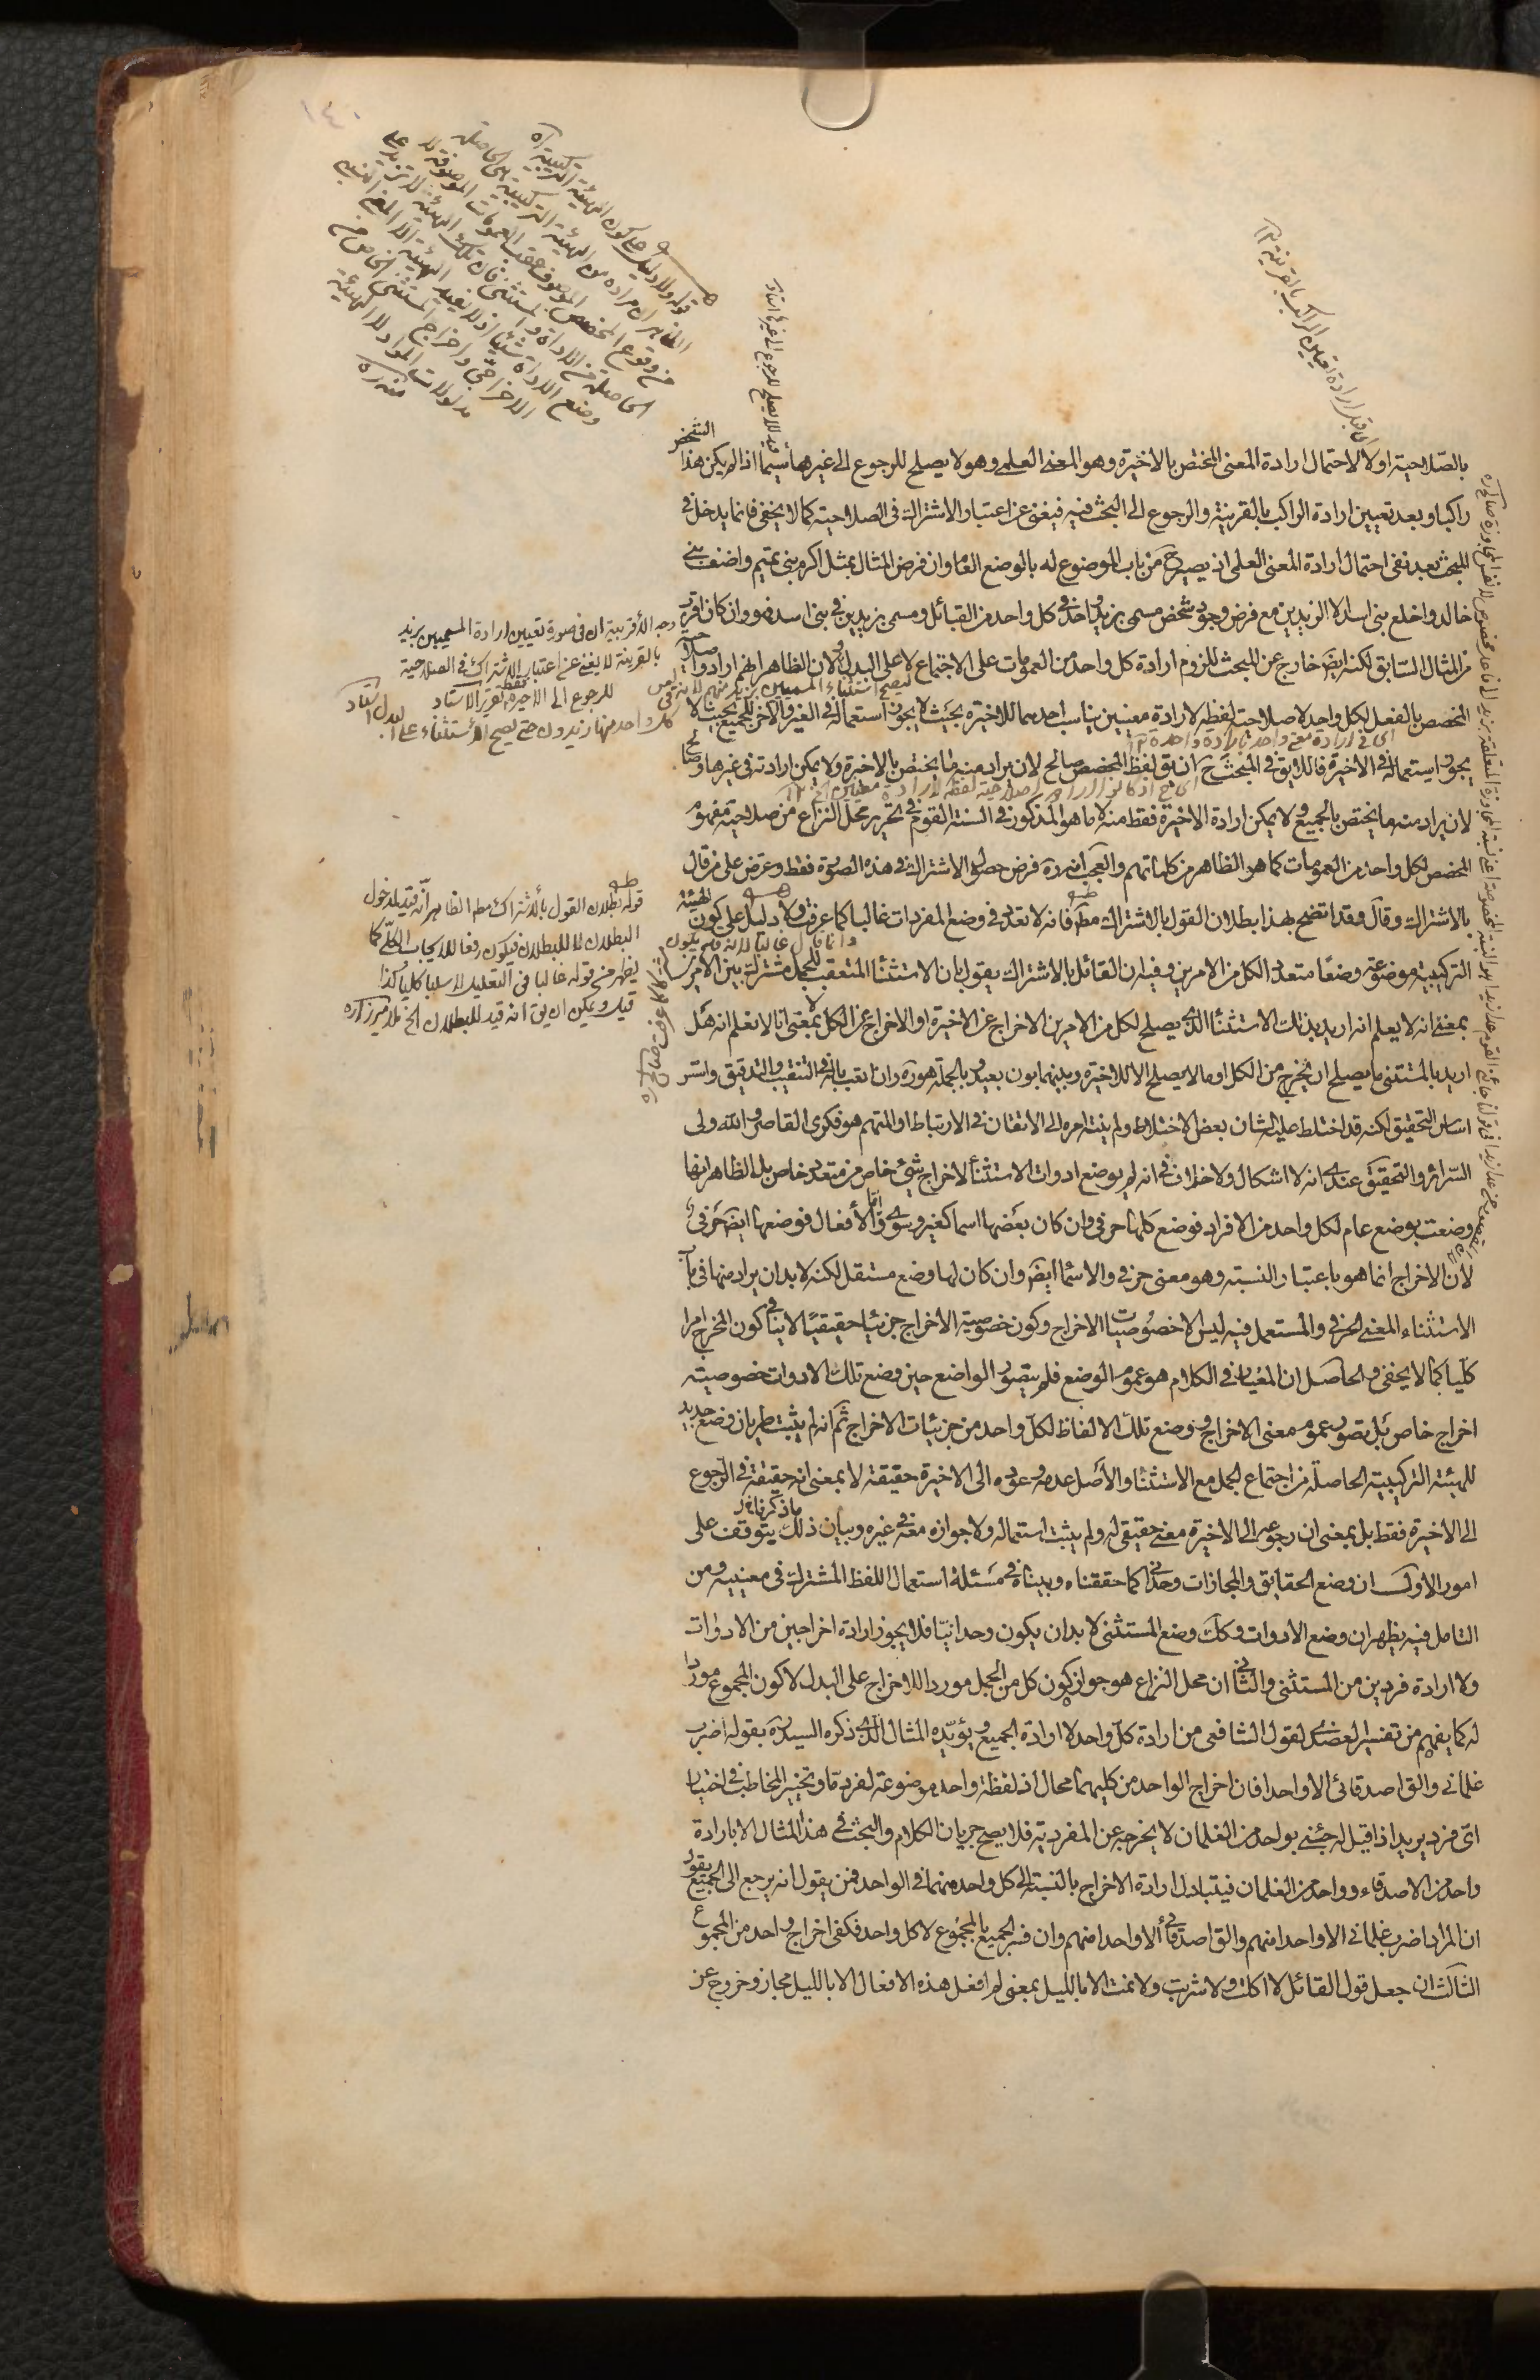 ١٤٠
بالصلاحية اولا لاحتمال ارادة المعنى المختص بالاخيرة وهو المعنى العلمي وهو لا يصلح للرجوع الى غيرها سيما اذا لم يكن هذا الشخص
راكبا وبعد تعيين ارادة الراكب بالقرينة والرجوع الى البحث فيه فيغنى عن اعتبار الاشتراك فى الصلاحية كما لا يخفى فانما يدخل فى
المبحث بعد نفى احتمال ارادة المعنى العلمى اذ يصير ح من باب الموضوع له بالوضع العام وان فرض المثال بمثل اكرم بنى تميم واضف بنى
خالد واخلع بنى اسد الا الزيدين مع فرض وجود شخص مسمى بزيد واحد فى كل واحد من القبائل ومسمى بزيدين فى بنى اسد فهو وان كان اقرب
من المثال السابق لكنه ايضا خارج عن المبحث للزوم ارادة كل واحد من العمومات على الاجتماع لا على البدل ولان الظاهر انهم ارادوا صلاحية
المخصص بالفعل لكل واحد لا صلاحية لفظه لارادة معنيين يناسب احدهما للاخيرة بحيث لا يجوز استعماله فى الغير والاخر للجميع بحيث لا
يجوز استعماله فى الاخيرة فاللايق فى المبحث ح ان يق لفظ المخصص صالح لان يراد منه ما يختص بالاخيرة ولا يمكن ارادته فى غيرها وصالح
لان يراد منه ما يختص بالجميع ولا يمكن ارادة الاخيرة فقط منه لا ما هو المذكور فى السنة القوم فى تحرير محل النزاع من صلاحية مفهوم
المخصص لكل واحد من العمومات كما هو الظاهر من كلماتهم والعجب انه ره فرض حصول الاشتراك فى هذه الصورة فقط وعرض على من قال
بالاشتراك وقال وقد اتضح بهذا بطلان القول بالاشتراك مط فانه لا تعدد فى وضع المفردات غالبا كما عرفت ولا دليل على كون الهيئة
التركيبية موضوعة وضعا متعددا لكل من الامرين وفيه ان القائل بالاشتراك يقول بان الاستثناء المتعقب للجمل مشترك بين الامرين
بمعنى انه لا يعلم انه اريد بذلك الاستثناء الذى يصلح لكل من الامرين الاخراج عن الاخيرة او الاخراج عن الكل لا بمعنى انا لا نعلم انه هل
اريد بالمستثنى ما يصلح ان يخرج من الكل او ما لا يصلح الا للاخيرة وبينهما بون بعيد وبالجملة هو ره وان اتعب باله فى التنقيب والتدقيق واسس
اساس التحقيق لكنه قد اختلط عليه الشان بعض الاختلاط ولم ينته امره الى الاتقان فى الارتباط او المتهم هو فكرى القاصر والله ولى
السرائر والتحقيق عندى انه لا اشكال ولا خلاف فى انه لم يوضع ادوات الاستثناء لاخراج شئ خاص من متعدد خاص بل الظاهر انها
وضعت بوضع عام لكل واحد من الافراد فوضع كلها حرفى وان كان بعضها اسما كغير وسوى واما الافعال فوضعها ايضا حرفى
لان الاخراج انما هو باعتبار النسبة وهو معنى حرفى والاسماء ايضا وان كان لها وضع مستقل لكنه لا بد ان يراد منها فى باب
الاستثناء المعنى الحرفى والمستعمل فيه ليس الا خصوصيات الاخراج وكون خصوصية الاخراج جزئيا حقيقيا لا ينافى كون المخرج امرا
كليا كما لا يخفى والحاصل ان المعيار فى الكلام هو عموم الوضع فلم يتصور الواضع حين وضع تلك الادوات خصوصية
اخراج خاص بل تصور عموم معنى الاخراج ووضع تلك الالفاظ لكل واحد من جزئيات الاخراج ثم انه لم يثبت طريان وضع جديد
للهيئة التركيبية الحاصلة من اجتماع الجمل مع الاستثناء والاصل عدمه وعوده الى الاخيرة حقيقة لا بمعنى انه حقيقة فى الرجوع
الى الاخيرة فقط بل بمعنى ان رجوعه الى الاخيرة معنى حقيقى له ولم يثبت استعماله ولا جوازه معه فى غيره وبيان ذلك يتوقف على
امور الاول ان وضع الحقايق والمجازات وحدانى كما حققناه وبيناه فى مسئلة استعمال اللفظ المشترك فى معنييه ومن
التامل فيه يظهر ان وضع الادوات وكك وضع المستثنى لا بد ان يكون وحدانيا فلا يجوز ارادة اخراجين من الادوات
ولا ارادة فردين من المستثنى والثانى ان محل النزاع هو جواز كون كل من الجمل موردا للاخراج على البدل لا كون المجموع موردا
له كما يفهم من تفسير العضدى لقول الشافعى من ارادة كل واحد لا ارادة الجميع ويؤيده المثال الذى ذكره السيد ره بقوله اضرب
غلمانى والق اصدقائى الا واحدا فان اخراج الواحد من كليهما محال اذ لفظة واحد موضوعة لفرد ما وتخيير المخاطب فى اختيار
اى فرد يريد اذا قيل له جئنى بواحد من الغلمان لا يخرجه عن المفردية فلا يصح جريان الكلام والبحث فى هذا المثال الا بارادة
واحد من الاصدقاء وواحد من الغلمان فيتبادل ارادة الاخراج بالنسبة الى كل واحد منهما فى الواحد فمن يقول انه يرجع الى الجميع يقول
ان المراد اضرب غلمانى الا واحدا منهم والق اصدقائى الا واحدا منهم وان فسر الجميع بالمجموع لا كل واحد فكفى اخراج واحد من المجموع
الثالث ان جعل قول القائل لا اكلت ولا شربت ولا نمت الا بالليل بمعنى لم افعل هذه الافعال الا بالليل مجاز وخروج عن
قوله ولا دليل على كون الهيئة التركيبية آه
الظاهر ان مراده من الهيئة التركيبية هى الحاصلة
من وقوع المخصص الموصوف عقيب العمومات الموصوفة لا
الحاصلة من الاداة والمستثنى فان تلك الهيئة لا تزيد على
وضع الاداة شيئا اذ لا تفيد الهيئة الا المعنى النسبى
الاخراجى واخراج المستثنى الخاص من
مدلولات المواد لا الهيئة
منه ره
قيد للا يصلح للرجوع الى غيرها استاد
اى قبل ارادة تعيين الراكب بالقرينة ١٢
وجه الأقربية ان فى صورة تعيين ارادة المسميين بزيد
بالقرينة لا يغنى عن اعتبار الاشتراك فى الصلاحية
للرجوع الى الاخيرة فقط تقرير الاستاد
ليصح استثناء المسميين بزيد منهم لانه ليس فى
كل واحد منها زيدون حتى يصح الاستثناء على البدل استاد
اى فى ارادة معنى واحد بارادة واحدة ١٢
قوله بطلان القول بالاشتراك مط الظاهر انه قيد لمدخول
البطلان لا للبطلان فيكون رفعا للايجاب الكلى كما
يظهر من قوله غالبا فى التعليل لا سلبا كليا كذا
قيل ويمكن ان يق انه قيد للبطلان الخ
وانما قال غالبا لانه قد يكون